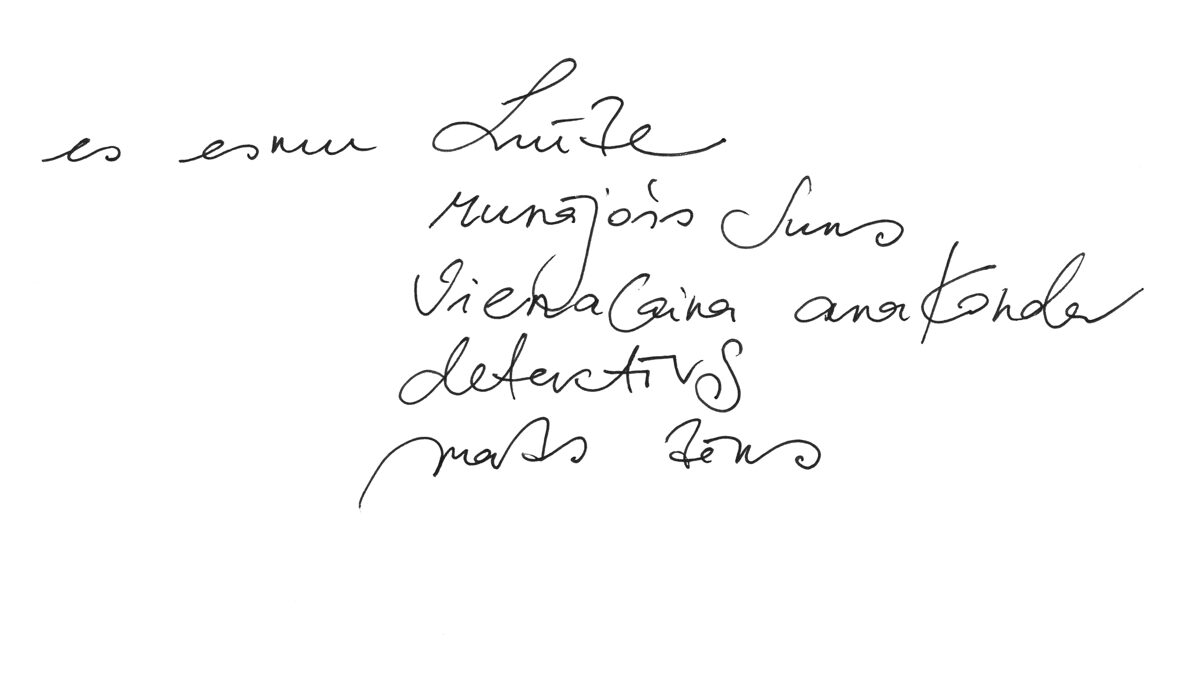 es esmu Luīze
runājošs Suns
Vienacaina anakonda
detektīvs
mazs zēns